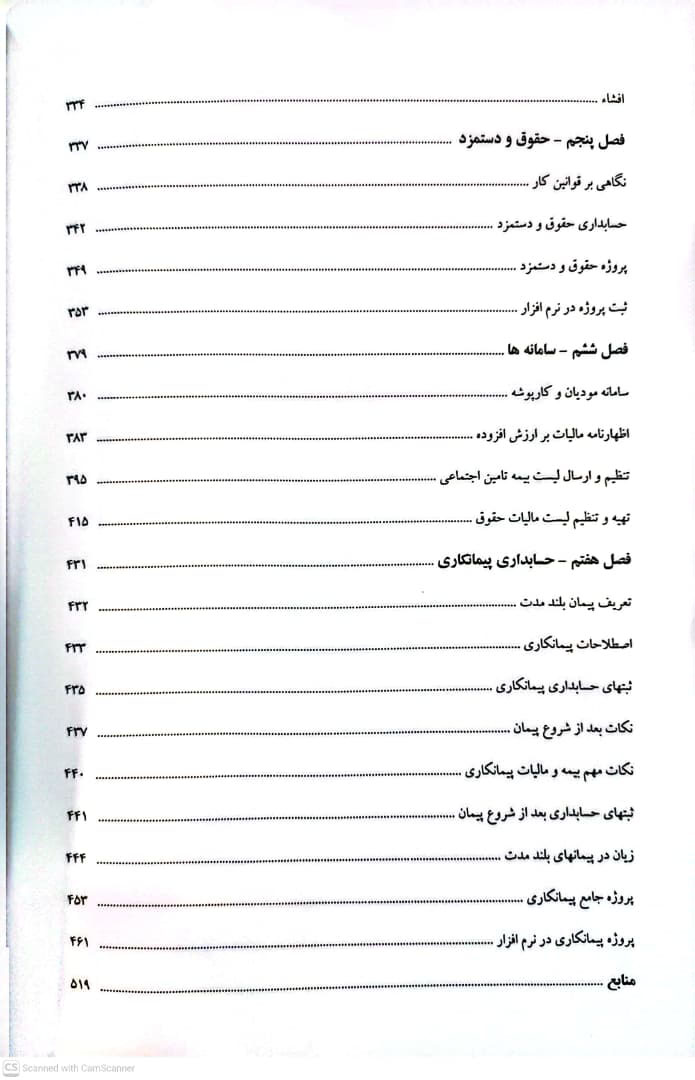 افشاء ........ ۳۳۴
فصل پنجم – حقوق و دستمزد ........ ۳۳۷
نگاهی بر قوانین کار ........ ۳۳۸
حسابداری حقوق و دستمزد ........ ۳۴۲
پروژه حقوق و دستمزد ........ ۳۴۹
ثبت پروژه در نرم افزار ........ ۳۵۳
فصل ششم – سامانه ها ........ ۳۷۹
سامانه مودیان و کارپوشه ........ ۳۸۰
اظهارنامه مالیات بر ارزش افزوده ........ ۳۸۳
تنظیم و ارسال لیست بیمه تامین اجتماعی ........ ۳۹۵
تهیه و تنظیم لیست مالیات حقوق ........ ۴۱۵
فصل هفتم – حسابداری پیمانکاری ........ ۴۳۱
تعریف پیمان بلند مدت ........ ۴۳۲
اصطلاحات پیمانکاری ........ ۴۳۳
ثبتهای حسابداری پیمانکاری ........ ۴۳۵
نکات بعد از شروع پیمان ........ ۴۳۷
نکات مهم بیمه و مالیات پیمانکاری ........ ۴۴۰
ثبتهای حسابداری بعد از شروع پیمان ........ ۴۴۱
زیان در پیمانهای بلند مدت ........ ۴۴۴
پروژه جامع پیمانکاری ........ ۴۵۳
پروژه پیمانکاری در نرم افزار ........ ۴۶۱
منابع ........ ۵۱۹
CS Scanned with CamScanner